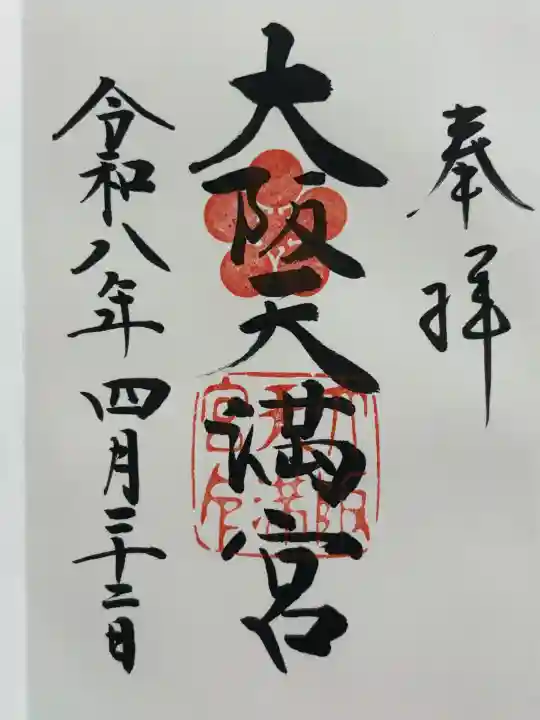 奉拝
大阪天満宮
令和八年四月二十二日